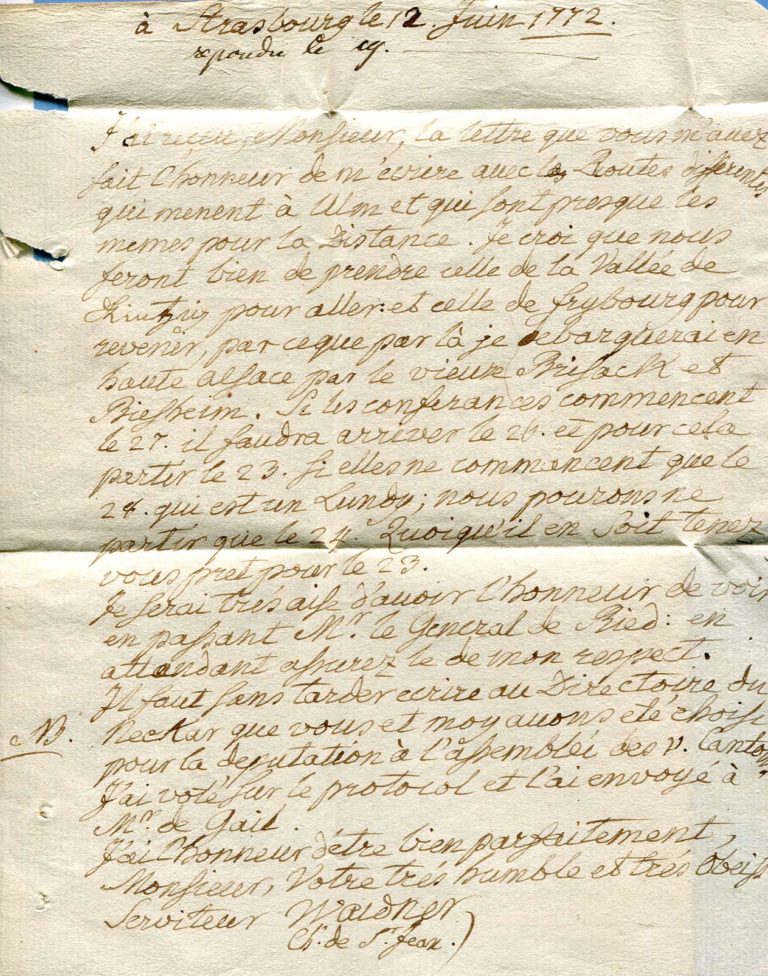 à Strasbourg le 12. Juin 1772.
repondu le 19.
J'ai receu, Monsieur, la lettre que vous m'avez
fait l'honneur de m'ecrire avec les Routes differentes
qui menent à Ulm et qui sont presque les
memes pour la Distance. Je croi que nous
feront bien de prendre celle de la Vallée de
pour aller et celle de frybourg pour
revenir, par ceque par là je debarquerai en
haute alsace par le vieux Brisack et
Biesheim. Si les conferances commencent
le 27. il faudra arriver le 26. et pour cela
partir le 23. si elles ne commancent que le
28. qui est un Lundy; nous pourons ne
partir que le 24. Quoiqu'il en soit tenez
vous pret pour le 23.
Je serai trés aise d'avoir l'honneur de voir
en passant Mr. le General de Ried: en
attendant assurez le de mon respect.
Il faut sans tarder ecrire au Directoire du
NB. Neckar que vous et moy avons eté choisi
pour la deputation à l'assemblée des v. Cantons
J'ai voté sur le protocol et l'ai envoyé à
Mr. de Gail.
J'ai l'honneur d'étre bien parfaitement,
Monsieur, Votre trés humble et trés Obeiss
Serviteur Waldner
Ch. de St. Jean.)